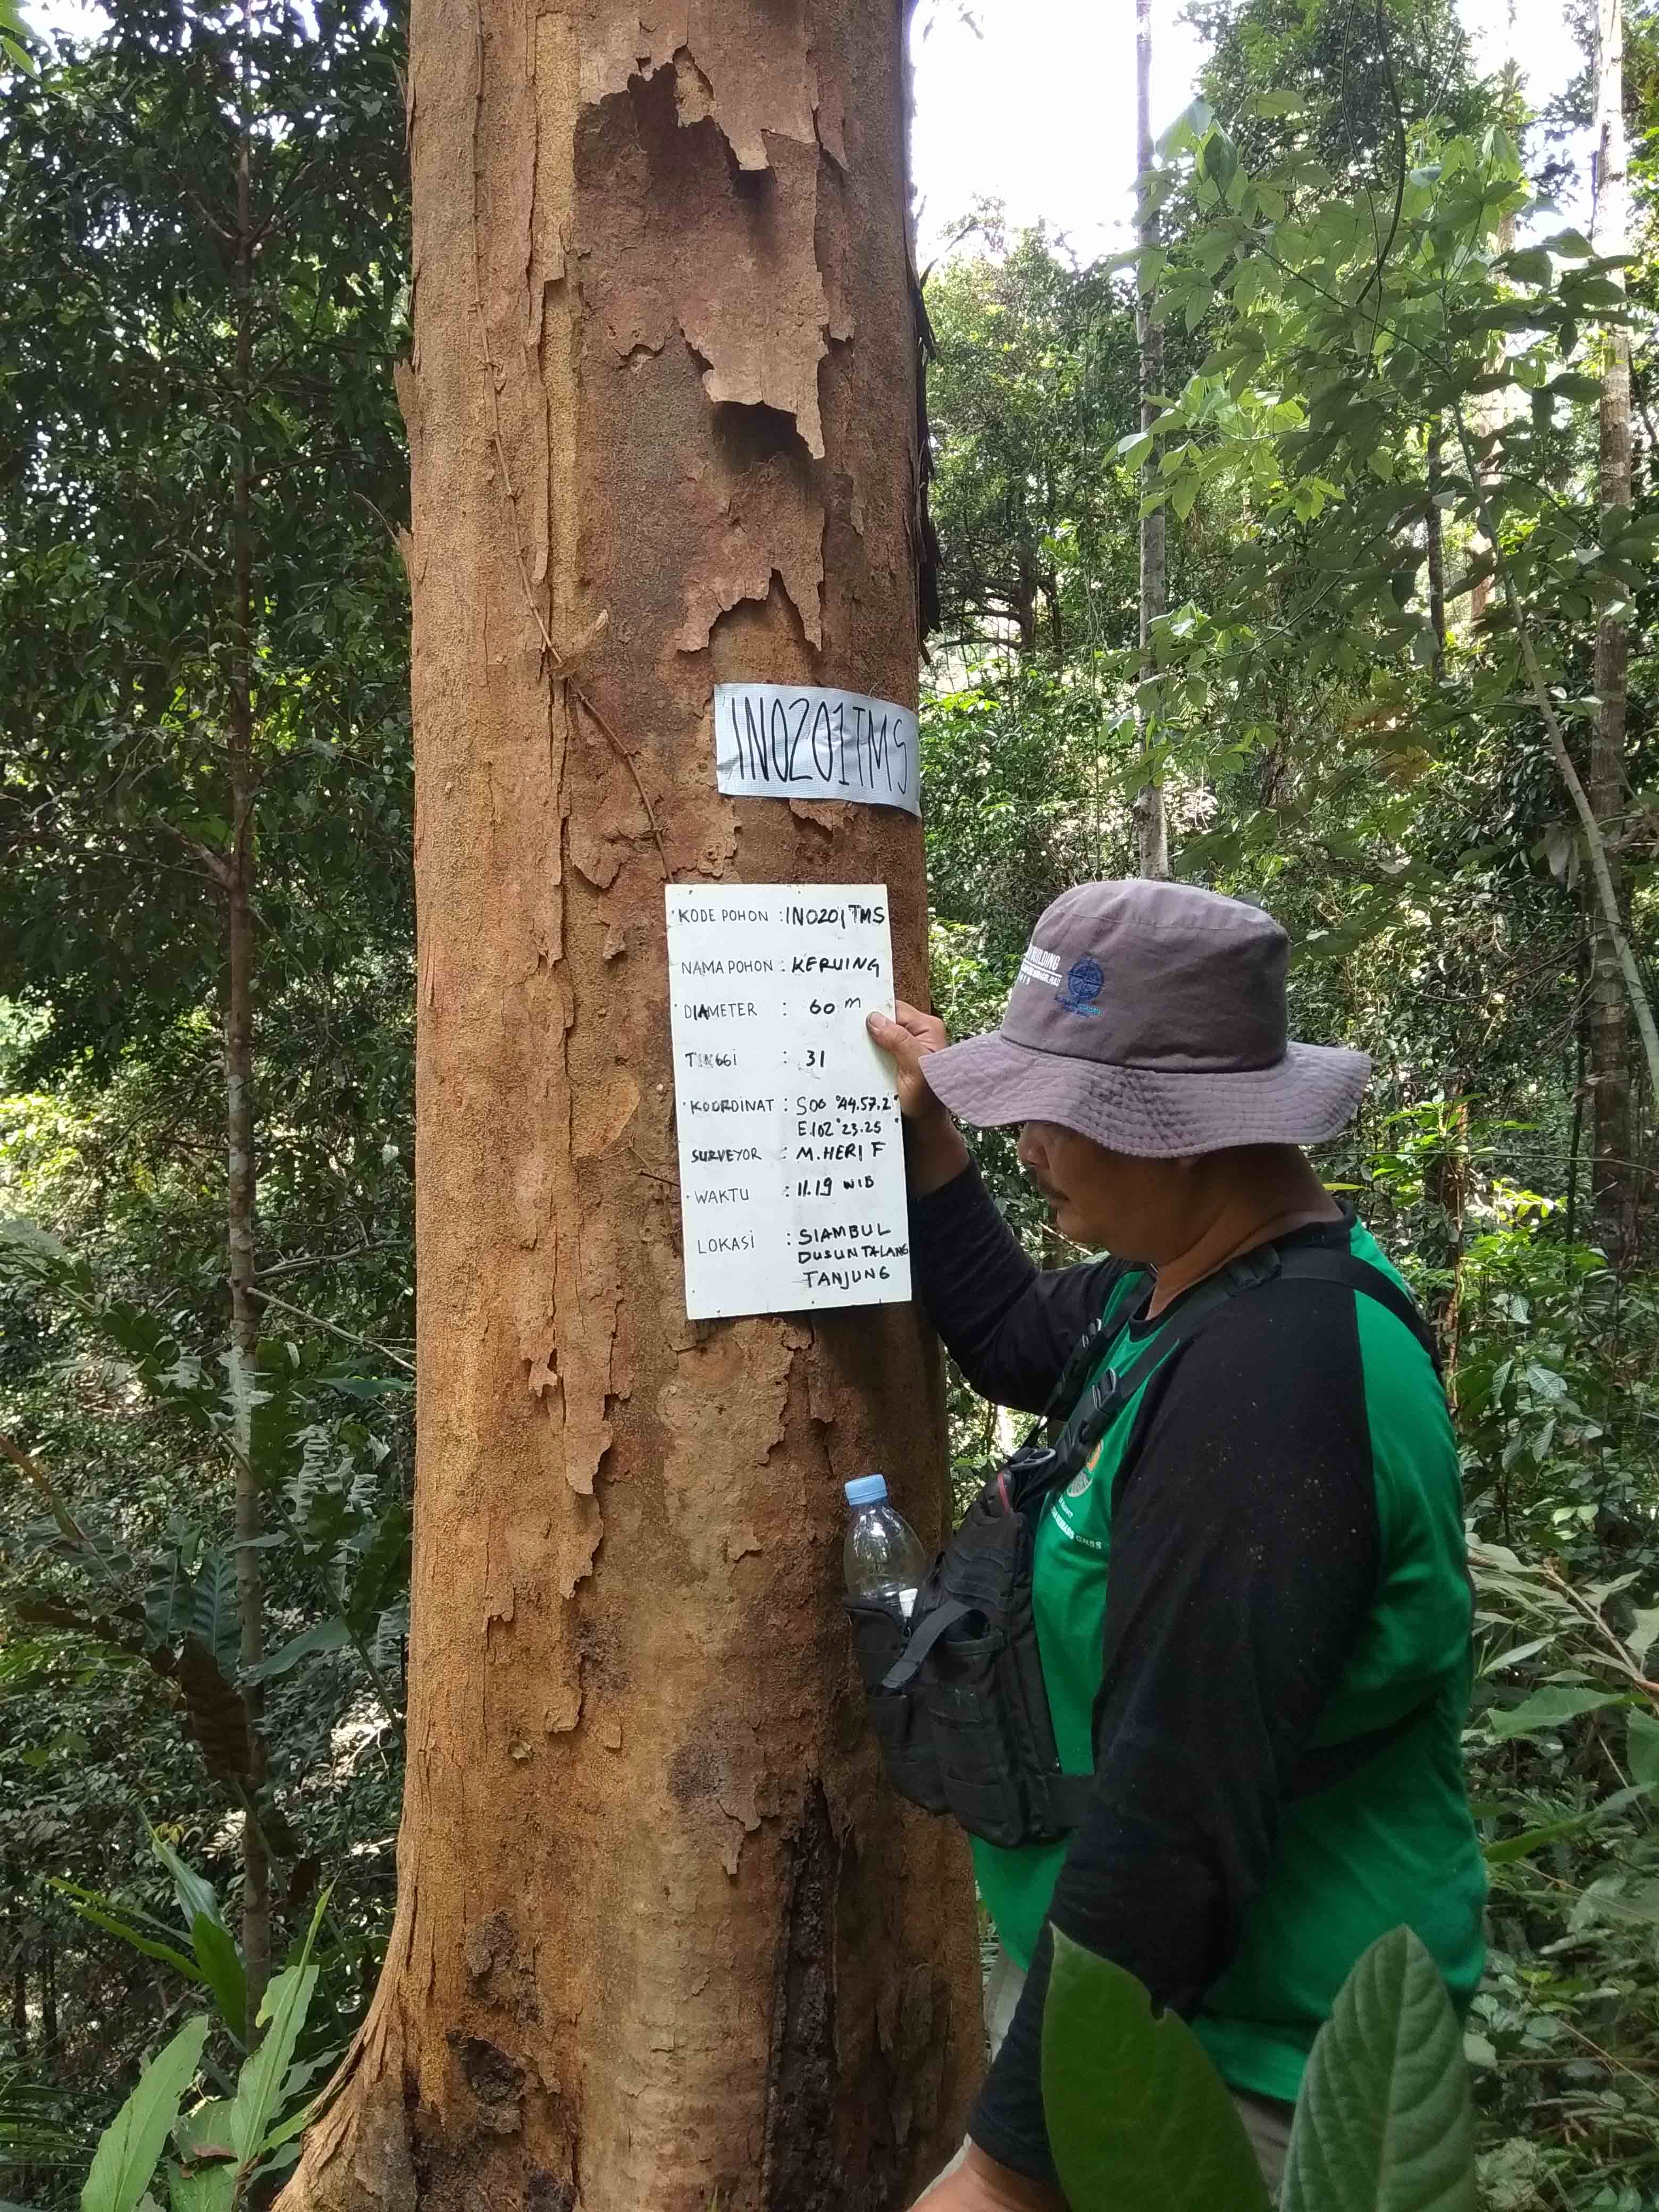 IN0201TMS
KODE POHON : IN0201TMS
NAMA POHON : KERUING
DIAMETER : 60 m
TINGGI : 31
KOORDINAT : S00 °44.57.2"
E.102°23.25"
SURVEYOR : M.HERI F
WAKTU : 11.19 WIB
LOKASI : SIAMBUL
DUSUN TALANG
TANJUNG